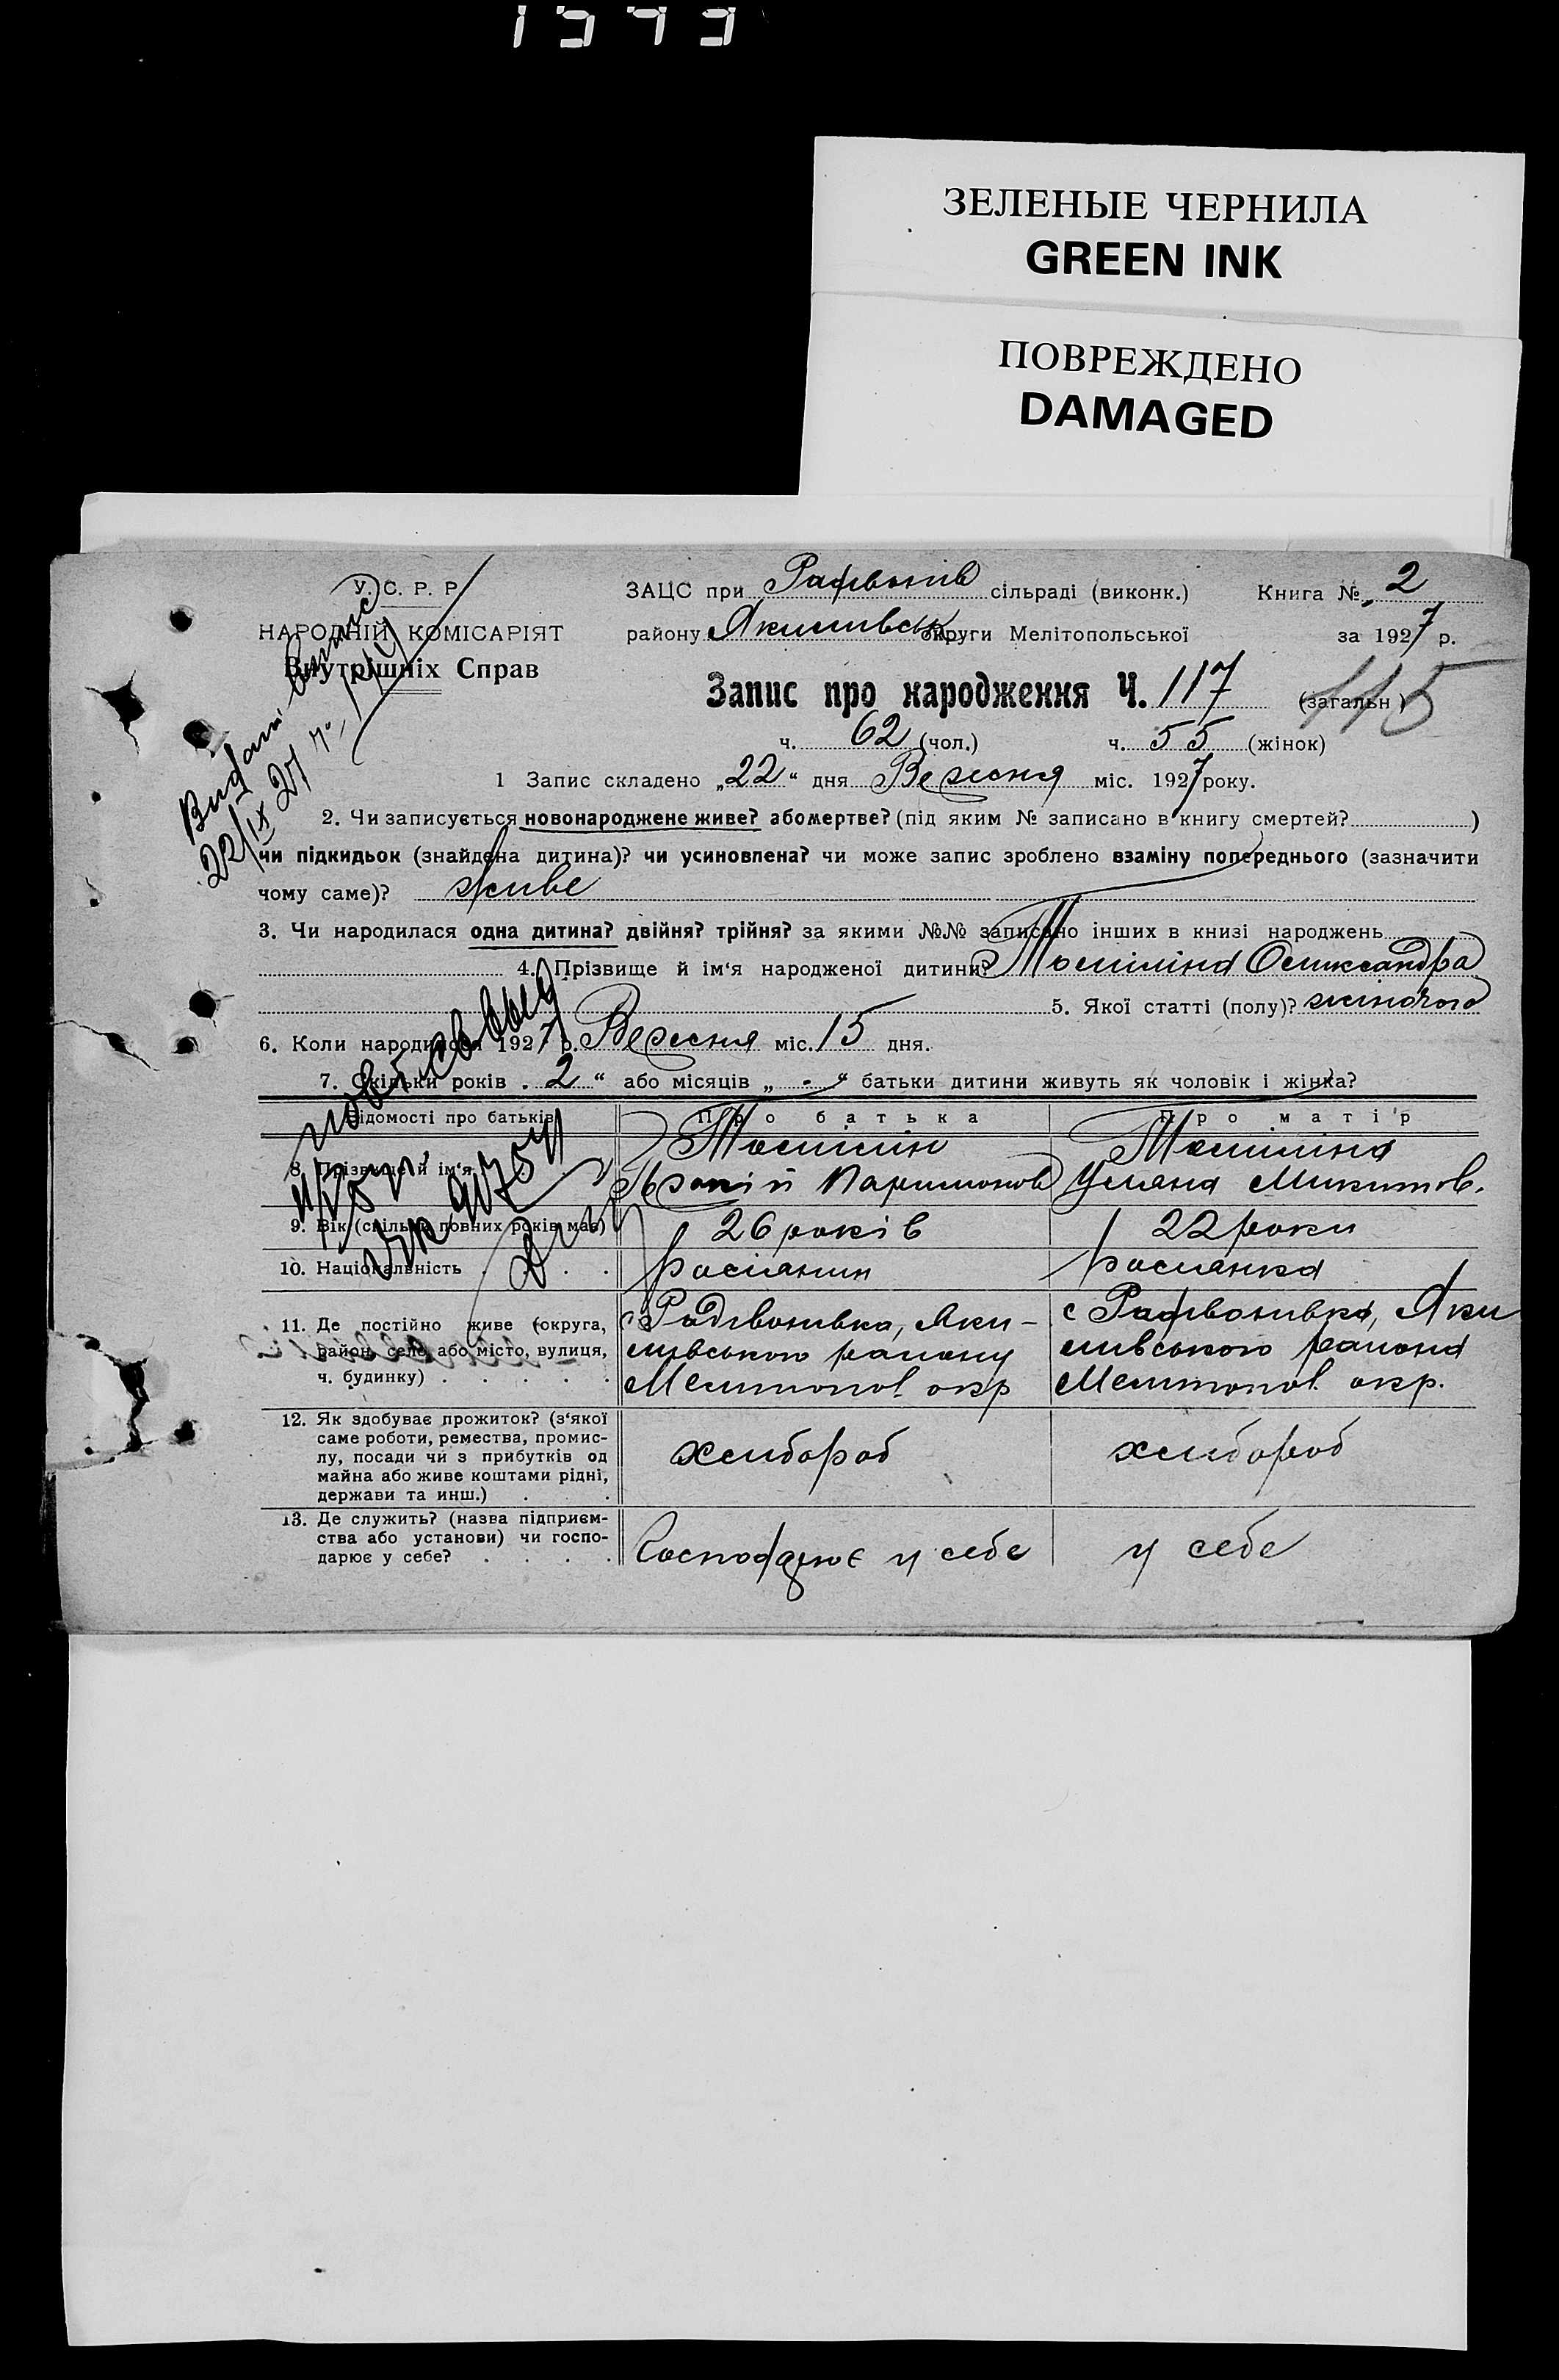 ЗЕЛЕНЫЕ ЧЕРНИЛА
GREEN INK
ПОВРЕЖДЕНО
DAMAGED
У. С. Р. Р.
НАРОДНІЙ КОМІСАРІЯТ
Внутрішніх Справ
ЗАЦС при Радівонів сільраді (виконк.) Книга № 2
району Якимівськ округи Мелітопольської за 1927 р.
Запис про народження Ч. 117 (загальн.) 115
ч. 62 (чол.) ч. 55 (жінок)
1 Запис складено „22“ дня Вересня міс. 1927 року.
2. Чи записується новонароджене живе? або мертве? (під яким № записано в книгу смертей?)
чи підкидьок (знайдена дитина)? чи усиновлена? чи може запис зроблено взаміну попереднього (зазначити
чому саме)? живе
3. Чи народилася одна дитина? двійня? трійня? за якими №№ записано інших в книзі народжень
4. Прізвище й ім‘я народженої дитини? Томіліна Олександра
5. Якої статті (полу)? жіночого
6. Коли народилося 1927 р. Вересня міс. 15 дня.
7. Скільки років „2“ або місяців „-“ батьки дитини живуть як чоловік і жінка?
Відомості про батьків Про батька Про матір
8. Прізвище й ім‘я Томілін Томіліна
Паримонов Уляна Микитов.
9. Вік (скільки повних років має) 26 років 22 роки
10. Національність росіянин росіянка
11. Де постійно живе (округа, с Радівонівка, Яки- с Радівонівка, Яки
район, село або місто, вулиця, мівського району мівського района
ч. будинку) Мелитопол. окр Мелитопол. окр.
12. Як здобуває прожиток? (з‘якої
саме роботи, ремества, промис-
лу, посади чи з прибутків од хлибороб хлибороб
майна або живе коштами рідні,
держави та инш.)
13. Де служить? (назва підприєм-
ства або установи) чи госпо-
дарює у себе? Господарює у себе у себе